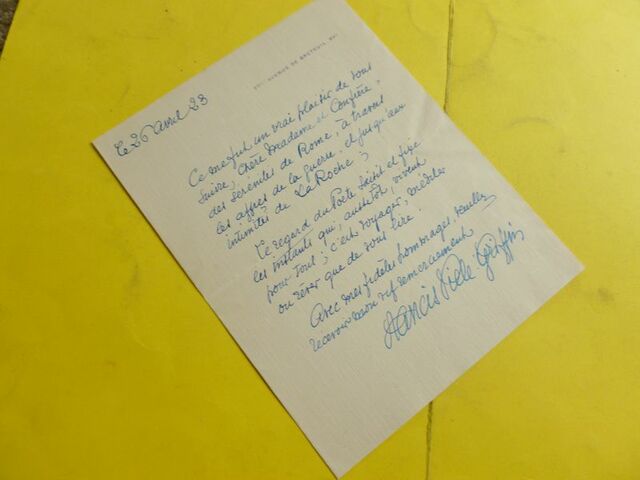 AVENUE DE BRETEUIL XVe
le 26 avril 28
Ce me fut un vrai plaisir de vous
suivre, Chère Madame et Confrère,
des sérénités de Rome, à travers
les affres de la guerre, et jusqu'aux
intimités de La Roche;
Le regard du Poète saisit et fixe
les instants qui, aussitôt, vivent
pour tous; c'est voyager, méditer
ou rêver que de vous lire.
Avec mes fidèles hommages, veuillez
recevoir mon vif remerciement
Francis Vielé-Griffin